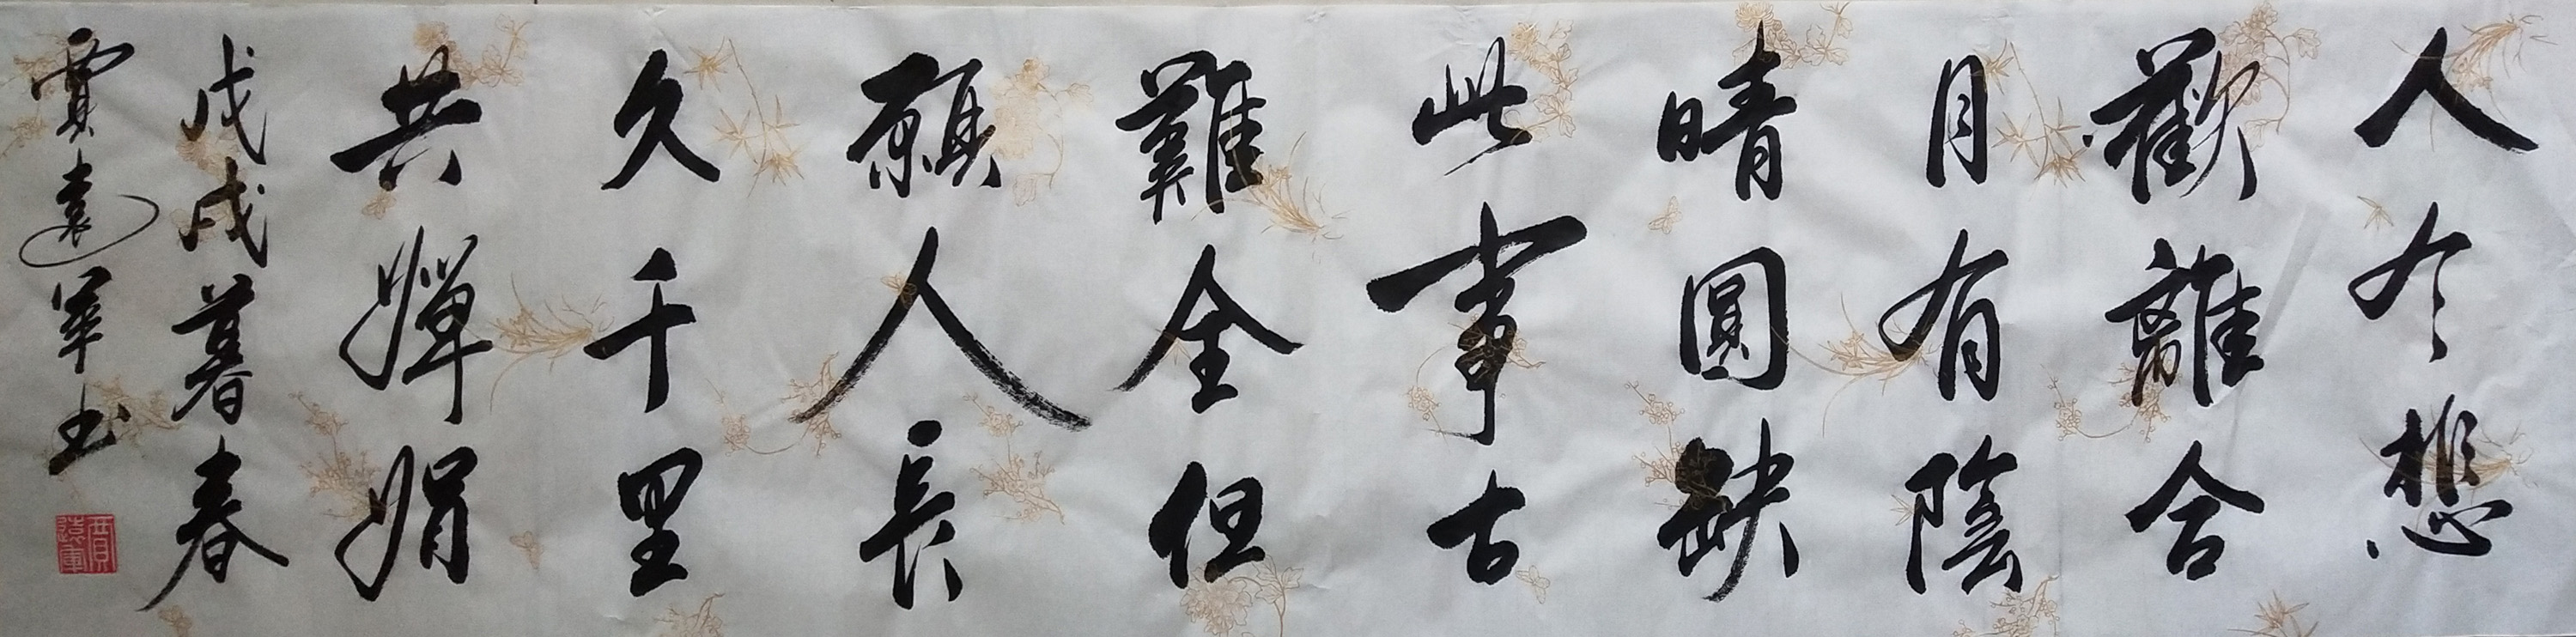 人有悲
歡離合
月有陰
晴圓缺
此事古
難全但
願人長
久千里
共嬋娟
戊戌暮春
賈遠軍书
賈遠軍